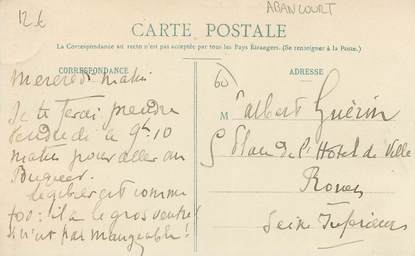 12 €
ABANCOURT
CARTE POSTALE
La Correspondance au recto n'est pas acceptée par tous les Pays Étrangers. (Se renseigner à la Poste.)
CORRESPONDANCE
Mercredi matin
Je te ferai prendre
Vendredi à 9h10
matin pour aller au
Le gibier est comme
fou : il a le gros ventre !
n'est pas mangeable !
ADRESSE
60
M albert Guérin
5 Place de l'Hotel de Ville
Rouen
Seine Inférieure